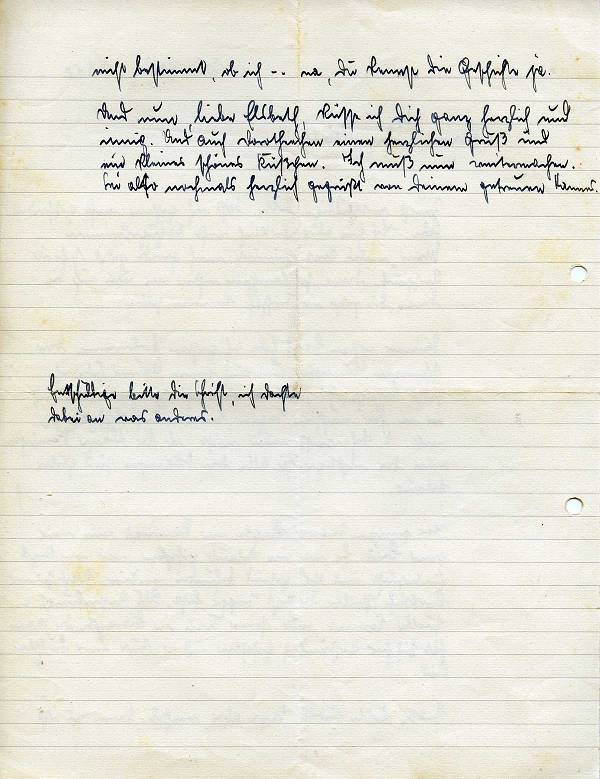 nicht bestimmt, ob ich -- na, Du kennst die Geschichte ja.
Und nun, liebe Elsbeth, küsse ich Dich ganz herzlich und
innig. Und auch Dorothechen einen herzlichen Gruß und
ein kleines schönes Küßchen. Ich muß nun weitermachen.
Sei also nochmals herzlich gegrüßt von Deinem getreuen
Entschuldige bitte die Schrift, ich dachte
dabei an was anderes.